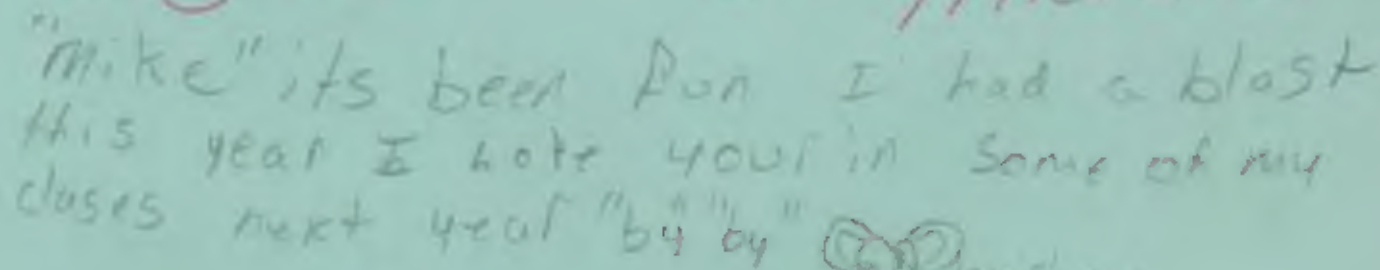 "Mike" its been fun I had a blast
this year I hote your in some of my
clases next year "by" "by"